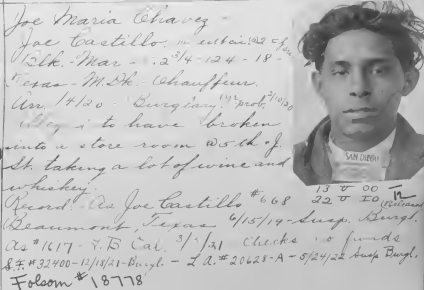 Joe Maria Chavez -
Joe Castillo,
Blk. - Mar - 2 3/4 - 124 - 18 -
Texas - M. Dk. Chauffeur.
An. 1/4/20 - Burglary. prob. 2/10/20
to have broken
into a store room @ 5th. & J.
St. taking a lot of wine and
whiskey.
SAN DIEGO
13 U 00 12
22 U IO
Record: As Joe Castillo # 668
Beaumont, Texas 6/15/19 - Susp. Burgl.
As # 1617 - Cal. 3/ /21 Checks no funds
S.F. # 32400 - 12/18/21 - Burgl. - L.A. # 20628-A - 5/24/22 Susp Burgl.
Folsom # 18778